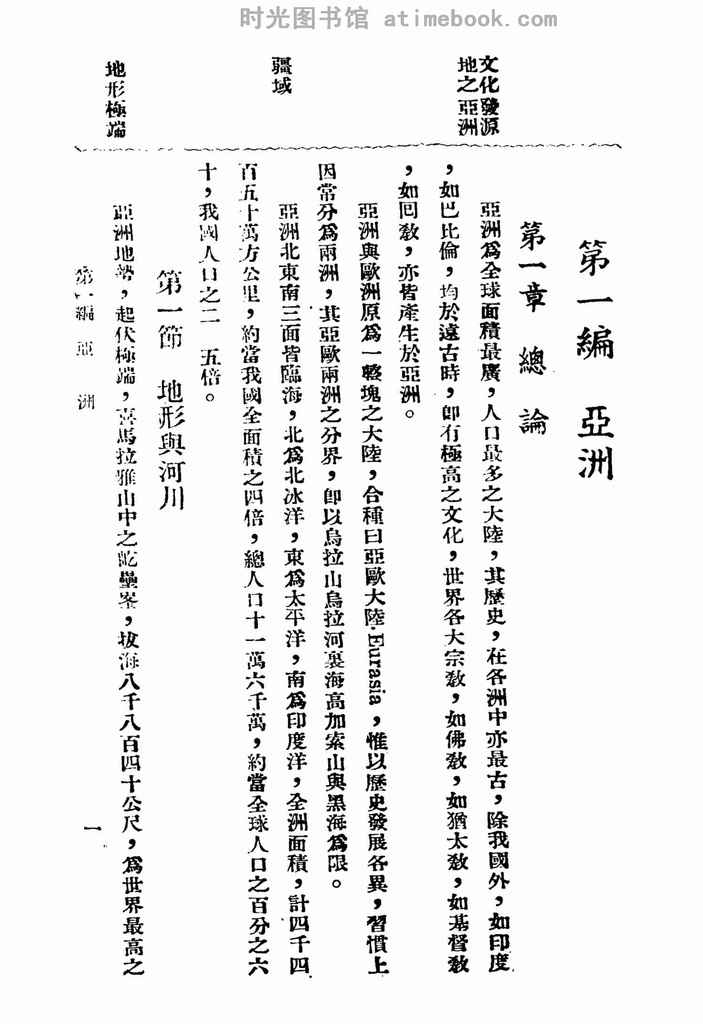 时光图书馆 atimebook.com
第一編 亞洲
第一章 總論
文化發源
地之亞洲
亞洲爲全球面積最廣，人口最多之大陸，其歷史，在各洲中亦最古，除我國外，如印度
，如巴比倫，均於遠古時，卽有極高之文化，世界各大宗教，如佛教，如猶太教，如基督教
，如回教，亦皆產生於亞洲。
亞洲與歐洲原爲一整塊之大陸，合種曰亞歐大陸Eurasia，惟以歷史發展各異，習慣上
因常分爲兩洲，其亞歐兩洲之分界，卽以烏拉山烏拉河裏海高加索山與黑海爲限。
疆域
亞洲北東南三面皆臨海，北爲北冰洋，東爲太平洋，南爲印度洋，全洲面積，計四千四
百五十萬方公里，約當我國全面積之四倍，總人口十一萬六千萬，約當全球人口之百分之六
十，我國人口之二 五倍。
第一節 地形與河川
地形極端
亞洲地勢，起伏極端，喜馬拉雅山中之 壘峯，拔海八千八百四十公尺，爲世界最高之
第一編 亞 洲
一